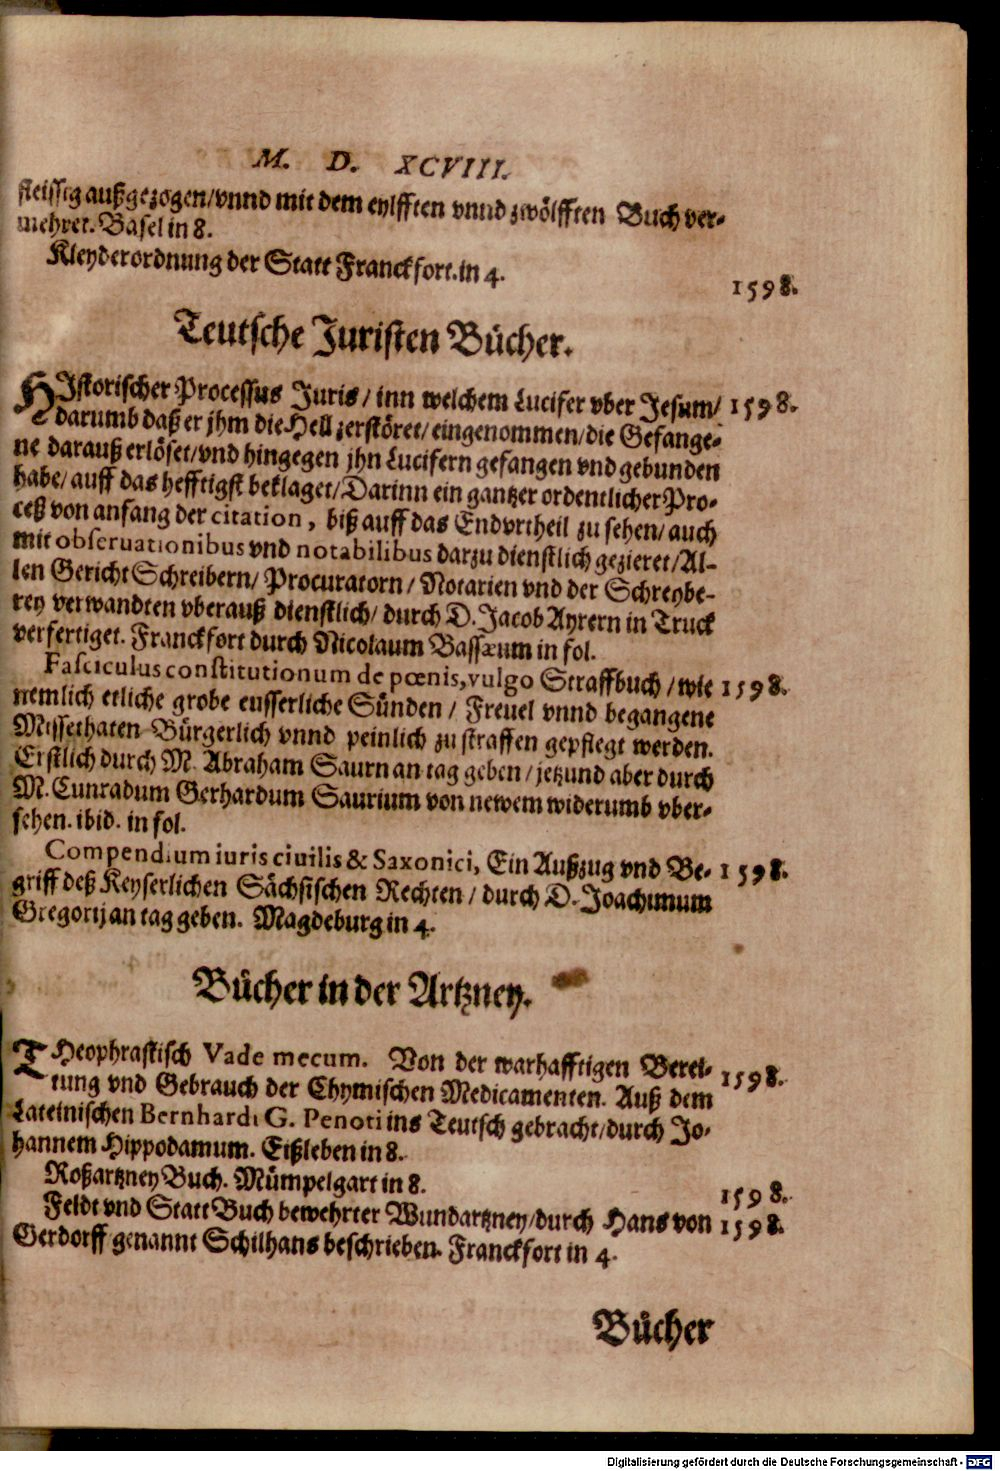 M. D. XCVIII.
fleissig außgezogen/vnnd mit dem eylfften vnnd zwölfften Buch ver-
mehret. Basel in 8.
Kleyderordnung der Statt Franckfort. in 4.
1598.
Teutsche Juristen Bücher.
HIstorischer Processus Juris/ inn welchem Lucifer vber Jesum/ 1598.
darumb daß er jhm die Hell zerstöret/ eingenommen/die Gefange-
ne darauß erlöset/vnd hingegen jhn Lucifern gefangen vnd gebunden
habe/ auff das hefftigst beklaget/Darinn ein gantzer ordentlicher Pro-
ceß von anfang der citation, biß auff das Endvrtheil zu sehen/ auch
mit obseruationibus vnd notabilibus darzu dienstlich gezieret/Al-
len Gericht Schreibern/ Procuratorn/ Notarien vnd der Schreybe-
rey verwandten vberauß dienstlich/ durch D. Jacob Ayrern in Truck
verfertiget. Franckfort durch Nicolaum Bassæum in fol.
Fasciculus constitutionum de pœnis, vulgo Straffbuch / wie 1598.
nemlich etliche grobe eusserliche Sünden / Freuel vnnd begangene
Missethaten Bürgerlich vnnd peinlich zu straffen gepflegt werden.
Erstlich durch M. Abraham Saurn an tag geben / jetzund aber durch
M. Cunradum Gerhardum Saurium von newem widerumb vber-
sehen. ibid. in fol.
Compendium iuris ciuilis & Saxonici, Ein Außzug vnd Be- 1598.
griff deß Keyserlichen Sächsischen Rechten / durch D. Joachimum
Gregorij an tag geben. Magdeburg in 4.
Bücher in der Artzney.
THeophrastisch Vade mecum. Von der warhafftigen Berei- 1598.
tung vnd Gebrauch der Chymischen Medicamenten. Auß dem
Lateinischen Bernhardi G. Penoti ins Teutsch gebracht/durch Jo-
hannem Hippodamum. Eißleben in 8.
Roßartzney Buch. Mümpelgart in 8. 1598.
Feldt vnd Statt Buch bewehrter Wundartzney/durch Hans von 1598.
Gerdorff genannt Schilhans beschrieben. Franckfort in 4.
Bücher
Digitalisierung gefördert durch die Deutsche Forschungsgemeinschaft - DFG